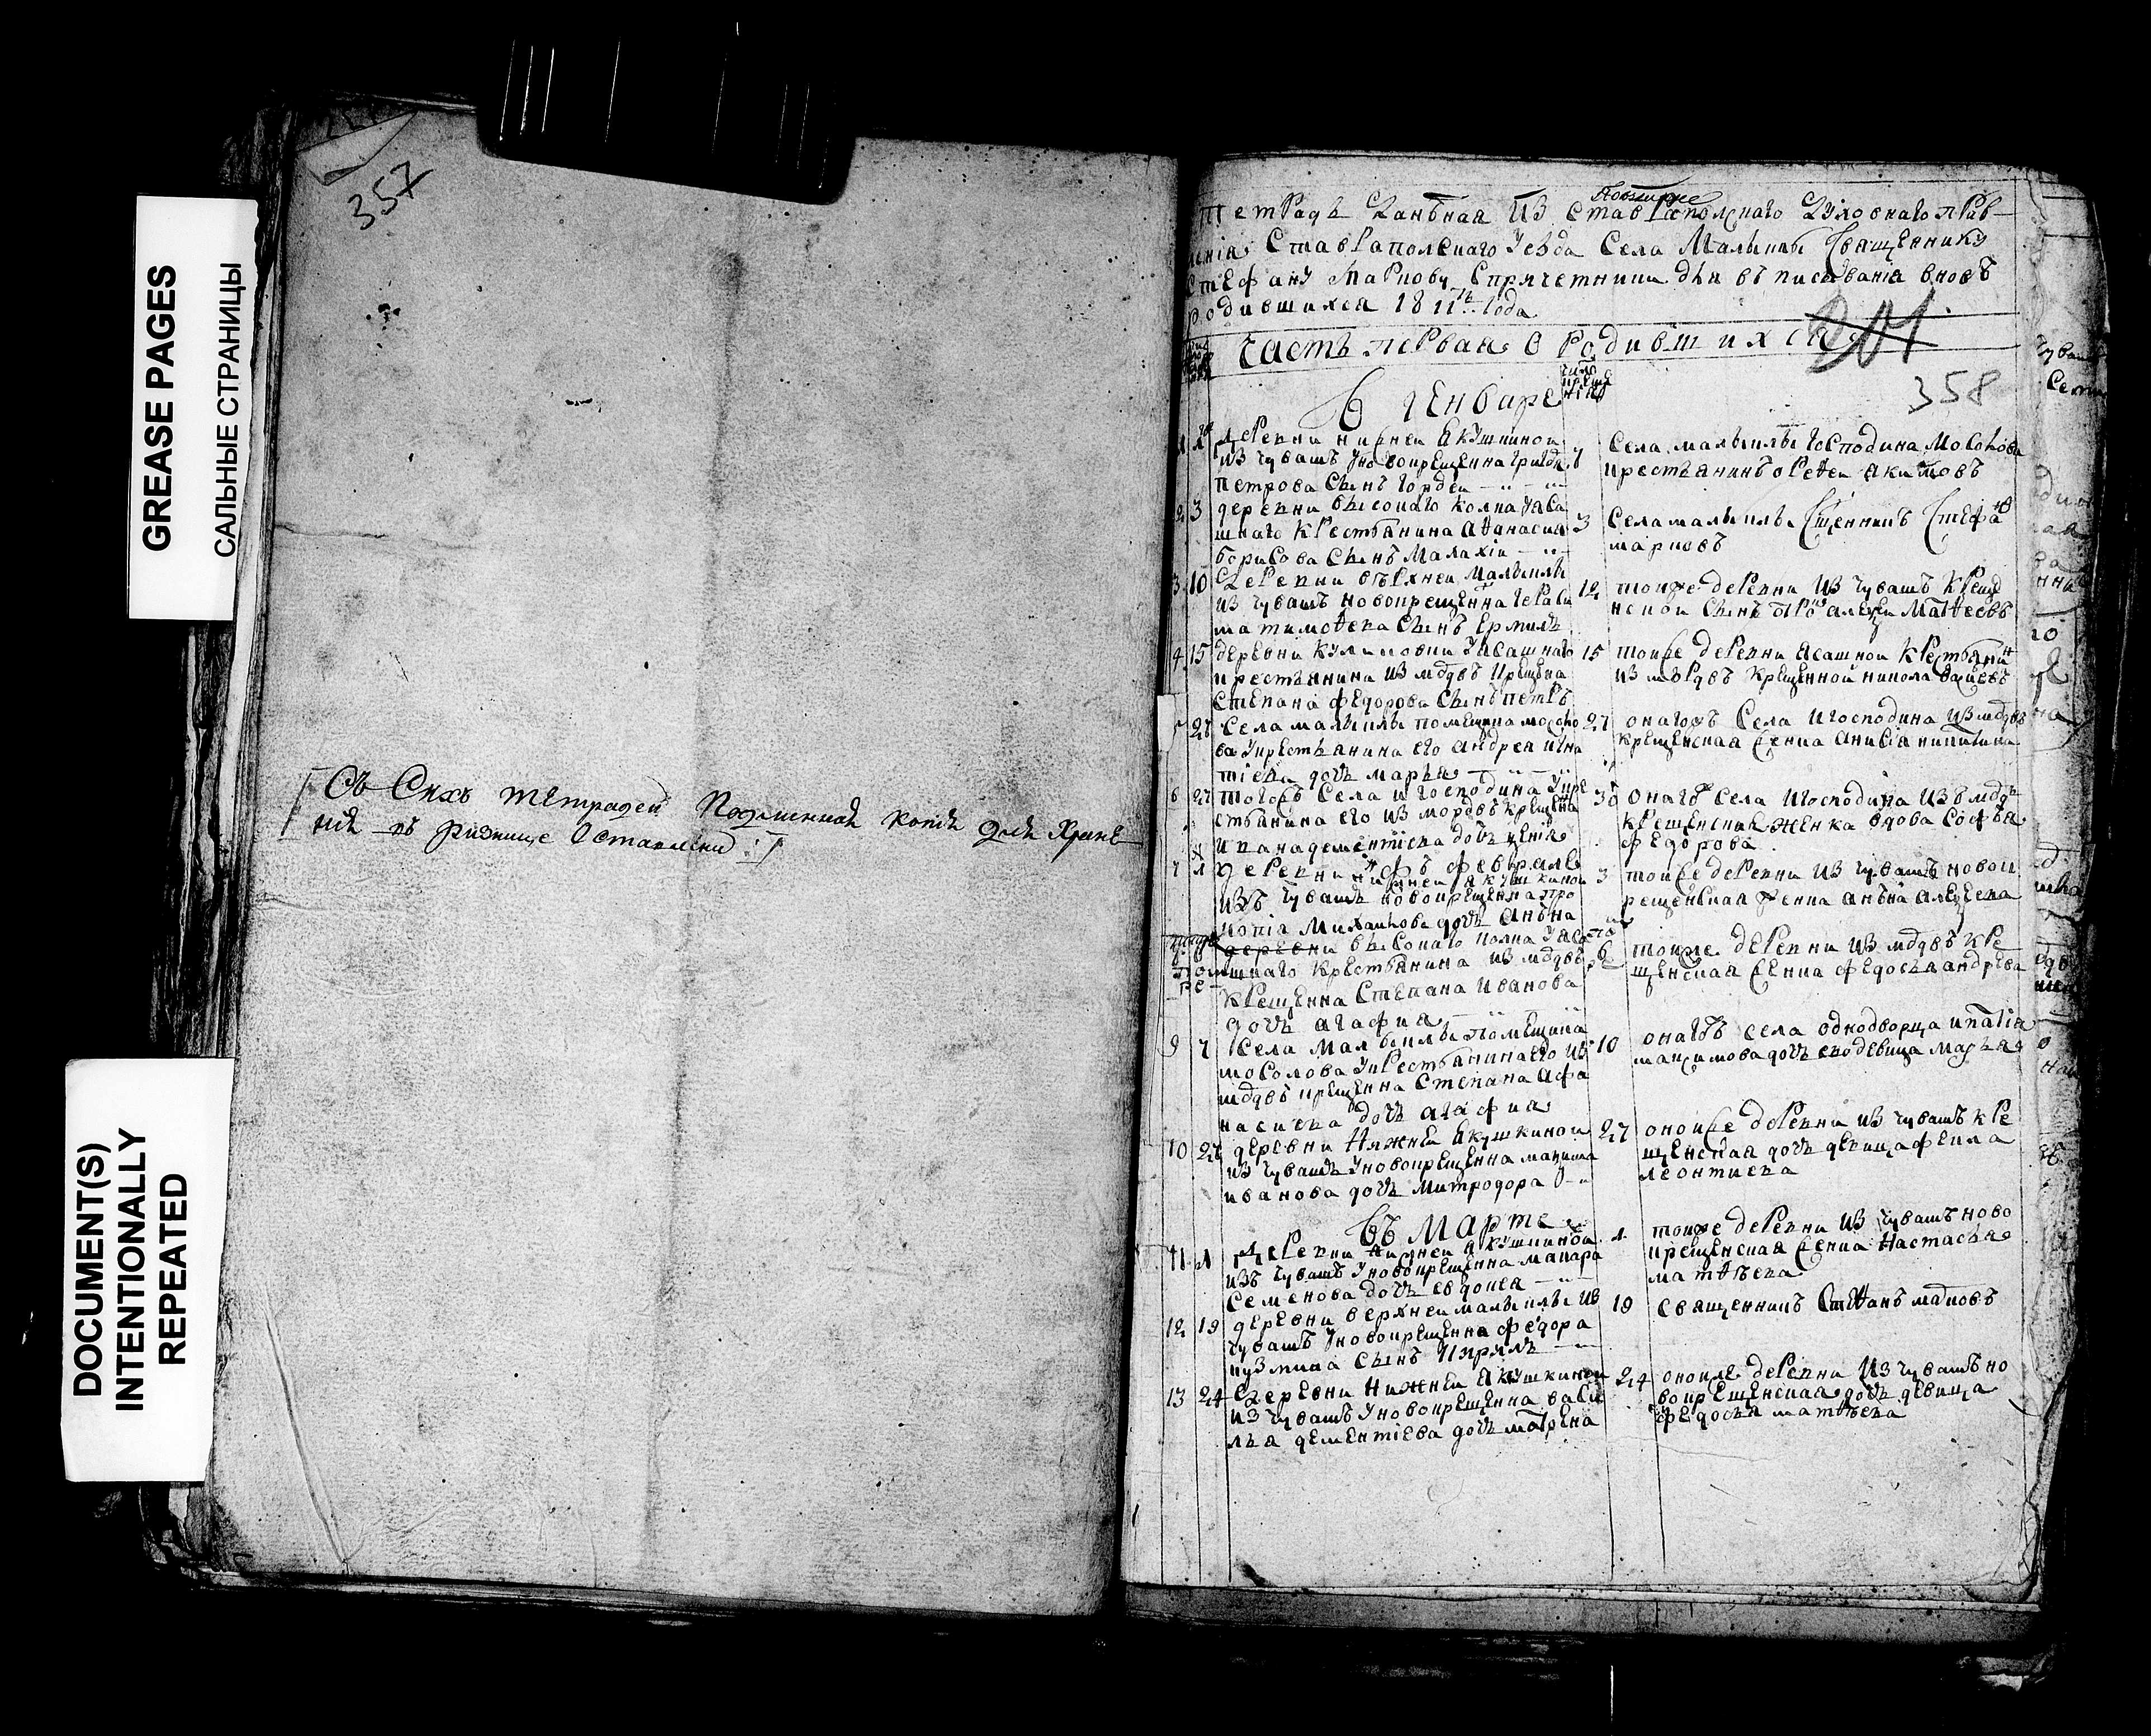 357
GREASE PAGES
САЛЬНЫЕ СТРАНИЦЫ
DOCUMENT(S)
INTENTIONALLY
REPEATED
Съ Сихъ тетрадей копия для Хране
ния въ ризнице Оставлена
тетрадь Данъная изъ Ставрапольскаго Духовнаго прав
ления Ставрапольскаго уезда Села Малыклы Священнику
Стефану Маркову Спричетники для въписывания вновь
родившихся 1811 года
Часть первая о родившихся
358
В генваре
1 1 Деревни нижней Якушкиной
изъ чувашъ у новокрещенна
Петрова сынъ Гордей
7 Села малыклы Господина Мосолова
крестьянинъ Акимовъ
2 3 деревни высокаго колка у Яса
шнаго крестьянина Афанасия
борисова Сынъ Малахiи
3 Села малыклы Сщенникъ Стефанъ
марковъ
3 10 Деревни верхней Малыклы
изъ чувашъ новокрещенна Гераси
ма тимофеева Сынъ Ермилъ
12 тоиже деревни изъ чувашъ крещ
Сынъ алексеи Матвеевъ
4 15 деревни у Ясашнаго
крестьянина изъ мрдвъ крещена
Степана федорова Сынъ петръ
15 тоиже деревни Ясашнои крестьянинъ
изъ мордвъ крещенной никола
5 27 Села малыклы помещика мосоло
ва у крестьянина его андрея игна
тiева дочь марья
27 онагожъ Села и господина изъ мрдвъ
крещенская женка анисiя никитина
6 27 тогожъ Села и господина у кре
стьянина его изъ мордвъ крещена
ивана дементiева дочь
30 онагожъ села и господина изъ мрдвъ
крещенская женка вдова Софья
федорова
въ феврале
7 1 Деревни нижней Якушкиной
изъ чувашъ новокрещенна про
копiя Михаилова дочь Анъна
3 тоиже деревни изъ чувашъ новок
рещенская женка анъна алексеева
деревни высокаго колка у Яса
шнаго крестьянина изъ мрдвъ
крещенна Степана иванова
дочь агафия
6 тоиже деревни изъ мрдвъ кре
щенская женка федосья андреева
9 7 Села Малыклы помещика
мосолова у крестьянина его изъ
мрдвъ крещенна Степана афа
насиева дочь агафия
10 онагожъ села однодворца ипатiя
максимова дочь ево девица марья
10 27 деревни Нижней Якушкиной
изъ чувашъ у новокрещенна максима
иванова дочь Митродора
27 оноиже деревни изъ чувашъ кре
щенская дочь девица фекла
леонтиева
въ Марте
11 1 Деревни нижней якушкиной
изъ чувашъ у новокрещенна макара
Семенова дочь евдокея
1 тоиже деревни изъ чувашъ ново
крещенская женка Настасья
матвеева
12 19 деревни верхней малыклы из
чувашъ у новокрещенна федора
кузмина Сынъ Кирилъ
19 священникъ Стефанъ марковъ
13 24 Деревни Нижней Якушкиной
изъ чувашъ у новокрещенна васи
лья дементiева дочь матрена
24 оноиже деревни изъ чувашъ но
вокрещенская дочь девица
федосья матвеева